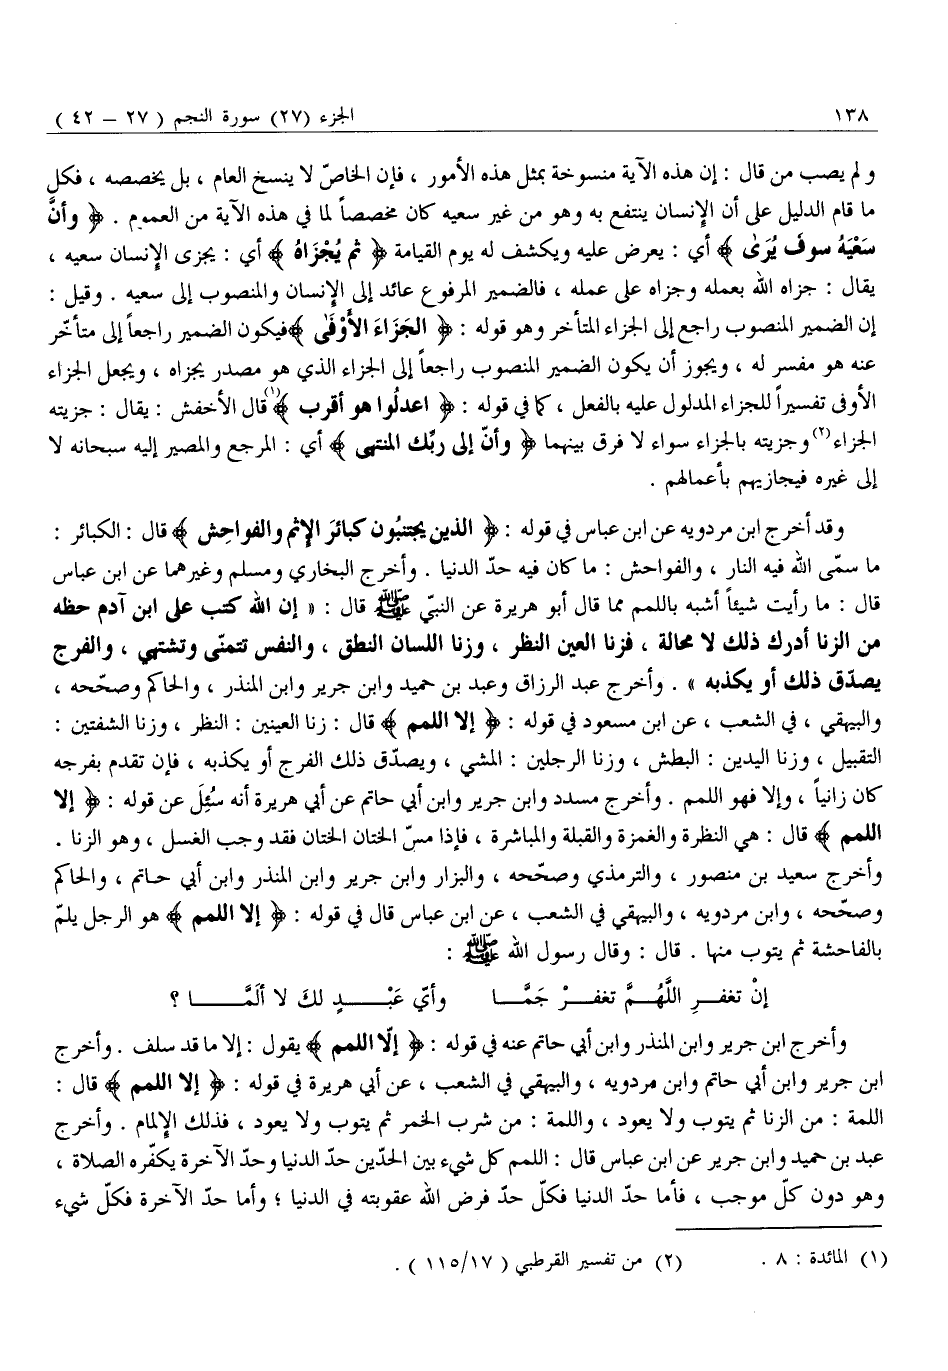 ١٣٨ الجزء (٢٧) سورة النجم ( ٢٧ – ٤٢ )
ولم يصب من قال : إن هذه الآية منسوخة بمثل هذه الأمور ، فإن الخاصّ لا ينسخ العام ، بل يخصصه ، فكل
ما قام الدليل على أن الإنسان ينتفع به وهو من غير سعيه كان مخصصاً لما في هذه الآية من العموم . ﴿ وأنَّ
سَعْيَهُ سوفَ يُرَىٰ ﴾ أي : يعرض عليه ويكشف له يوم القيامة ﴿ ثم يُجْزَاهُ ﴾ أي : يجزى الإنسان سعيه ،
يقال : جزاه الله بعمله وجزاه على عمله ، فالضمير المرفوع عائد إلى الإنسان والمنصوب إلى سعيه . وقيل :
إن الضمير المنصوب راجع إلى الجزاء المتأخر وهو قوله : ﴿ الجَزَاءَ الأَوْفَىٰ ﴾ فيكون الضمير راجعاً إلى متأخّر
عنه هو مفسر له ، ويجوز أن يكون الضمير المنصوب راجعاً إلى الجزاء الذي هو مصدر يجزاه ، ويجعل الجزاء
الأوفى تفسيراً للجزاء المدلول عليه بالفعل ، كما في قوله : ﴿ اعدلُوا هو أقرب ﴾(١) قال الأخفش : يقال : جزيته
الجزاء(٢) وجزيته بالجزاء سواء لا فرق بينهما ﴿ وأنّ إلى ربِّك المنتهى ﴾ أي : المرجع والمصير إليه سبحانه لا
إلى غيره فيجازيهم بأعمالهم .
وقد أخرج ابن مردويه عن ابن عباس في قوله : ﴿ الذين يجتنبُون كبائرَ الإثم والفواحِش ﴾ قال : الكبائر :
ما سمّى الله فيه النار ، والفواحش : ما كان فيه حدّ الدنيا . وأخرج البخاري ومسلم وغيرهما عن ابن عباس
قال : ما رأيت شيئاً أشبه باللمم مما قال أبو هريرة عن النبيّ ﷺ قال : « إن الله كتب على ابن آدم حظه
من الزنا أدرك ذلك لا محالة ، فزنا العين النظر ، وزنا اللسان النطق ، والنفس تتمنّى وتشتهي ، والفرج
يصدّق ذلك أو يكذبه » . وأخرج عبد الرزاق وعبد بن حميد وابن جرير وابن المنذر ، والحاكم وصحّحه ،
والبيهقي ، في الشعب ، عن ابن مسعود في قوله : ﴿ إلا اللمم ﴾ قال : زنا العينين : النظر ، وزنا الشفتين :
التقبيل ، وزنا اليدين : البطش ، وزنا الرجلين : المشي ، ويصدّق ذلك الفرج أو يكذبه ، فإن تقدم بفرجه
كان زانياً ، وإلا فهو اللمم . وأخرج مسدد وابن جرير وابن أبي حاتم عن أبي هريرة أنه سُئِلَ عن قوله : ﴿ إلا
اللمم ﴾ قال : هي النظرة والغمزة والقبلة والمباشرة ، فإذا مسّ الختان الختان فقد وجب الغسل ، وهو الزنا .
وأخرج سعيد بن منصور ، والترمذي وصحّحه ، والبزار وابن جرير وابن المنذر وابن أبي حاتم ، والحاكم
وصحّحه ، وابن مردويه ، والبيهقي في الشعب ، عن ابن عباس قال في قوله : ﴿ إلا اللمم ﴾ هو الرجل يلمّ
بالفاحشة ثم يتوب منها . قال : وقال رسول الله ﷺ :
إنْ تغفـرِ اللَّهُـمَّ تغفـرْ جَمَّـا وأيّ عَبْـدٍ لكَ لا ألَمَّـا ؟
وأخرج ابن جرير وابن المنذر وابن أبي حاتم عنه في قوله : ﴿ إلّا اللمم ﴾ يقول : إلا ما قد سلف . وأخرج
ابن جرير وابن أبي حاتم وابن مردويه ، والبيهقي في الشعب ، عن أبي هريرة في قوله : ﴿ إلا اللمم ﴾ قال :
اللمة : من الزنا ثم يتوب ولا يعود ، واللمة : من شرب الخمر ثم يتوب ولا يعود ، فذلك الإلمام . وأخرج
عبد بن حميد وابن جرير عن ابن عباس قال : اللمم كل شيء بين الحدّين حدّ الدنيا وحدّ الآخرة يكفّره الصلاة ،
وهو دون كلّ موجب ، فأما حدّ الدنيا فكلّ حدّ فرض الله عقوبته في الدنيا ؛ وأما حدّ الآخرة فكلّ شيء
(١) المائدة : ٨ . (٢) من تفسير القرطبي ( ١١٥/١٧ ) .